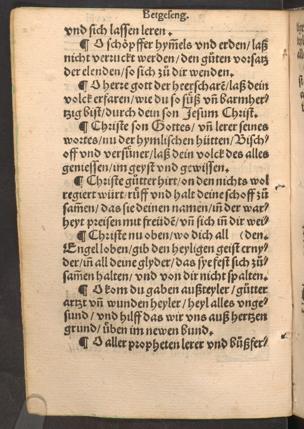 Betgeseng.
vnd sich lassen leren.
¶ O schöpffer hym̄els vnd erden/laß
nicht verruckt werden/den gůten vorsatz
der elenden/so sich zů dir wenden.
¶ O herre gott der heerscharē/laß dein
volck erfaren/wie du so süß vn̄ barmher
tzig bist/durch dein son Jesum Christ.
¶ Christe son Gottes/ vn̄ lerer seines
wortes/nu der hymlischen hütten/Bisch
off vnd versüner/laß dein volck des alles
geniessen/im geyst vnd gewissen.
¶ Christe gůtter hirt/on den nichts wol
regiert würt/rüff vnd halt deine schoff zů
sam̄en/das sie deinen namen/in̄ der war
heyt preisen mit freüdē/vn̄ sich nit vō dir
¶ Christe nu oben/wo dich all (den.
Engel loben/gib den heyligen geist erny/
der/in̄ all deine glyder/das sye fest sich zů
sam̄en halten/vnd von dir nicht spalten.
¶ O kom du gaben außteyler/gůtter
artzt vn̄ wunden heyler/heyl alles vnge
sund/vnd hilff das wir vns auß hertzen
grund/üben im newen bund.
¶ O aller propheten lerer vnd bůßfer/